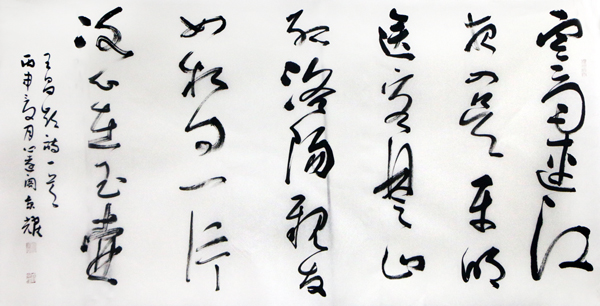 寒雨連江
夜入吴平明
送客楚山
孤洛陽親友
如相问一片
冰心在玉壺
王昌龄诗一首
丙申夏月